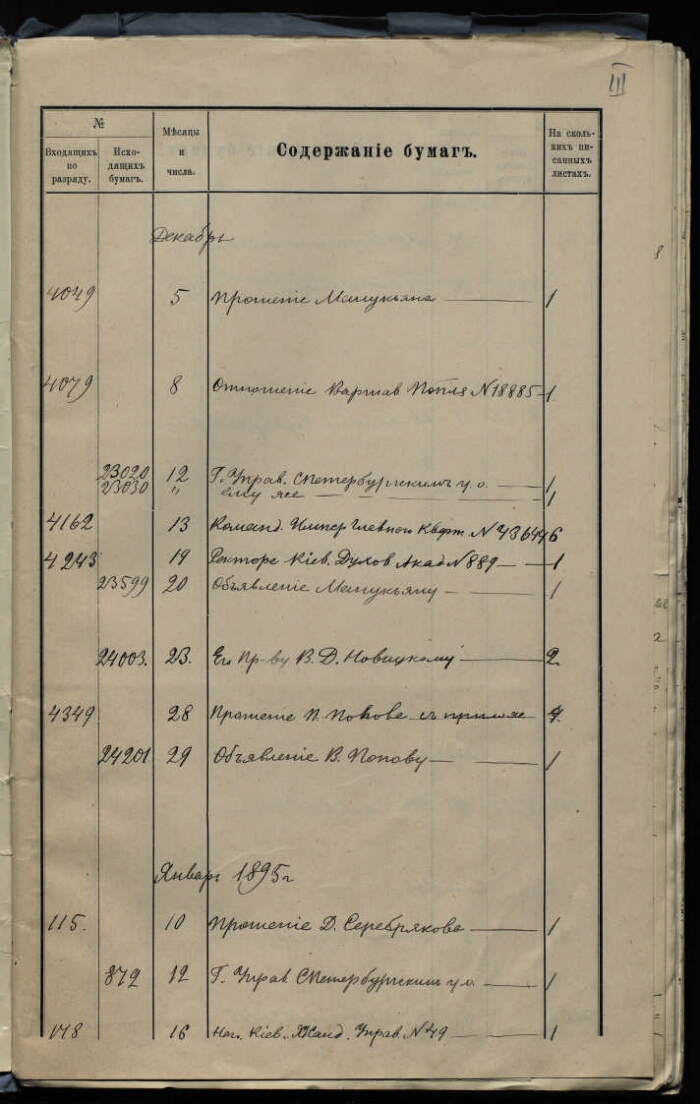 III
№
Входящихъ по разряду.
Исхо-
дящихъ бумагъ.
Мѣсяцы и числа.
Содержаніе бумагъ.
На сколь-
кихъ пи-
санныхъ листахъ.
Декабрь
4049 5 Прошеніе Манукьяна 1
4079 8 Отношеніе Варшав N18885 1
23020 12 Г. Управ. СПетербургскимъ у.о. 1
23030 " ему же 1
4162 13 Команд. Импер Главною Кварт. 6
4243 19 Ректора Кіев. Духов Акад N 889 1
23599 20 Объявленіе Манукьяну 1
24003. 23. Его Пр-ву В. Д. Новицкому 2
4349 28 Прошеніе П. Попова съ прилож 4.
24201 29 Объявленіе В. Попову 1
Январь 1895г
115. 10 Прошеніе Д. Серебрякова 1
872 12 Г. Управ СПетербургскимъ у.о. 1
178 16 Нач. Кіев. Жанд. Управ. N49 1